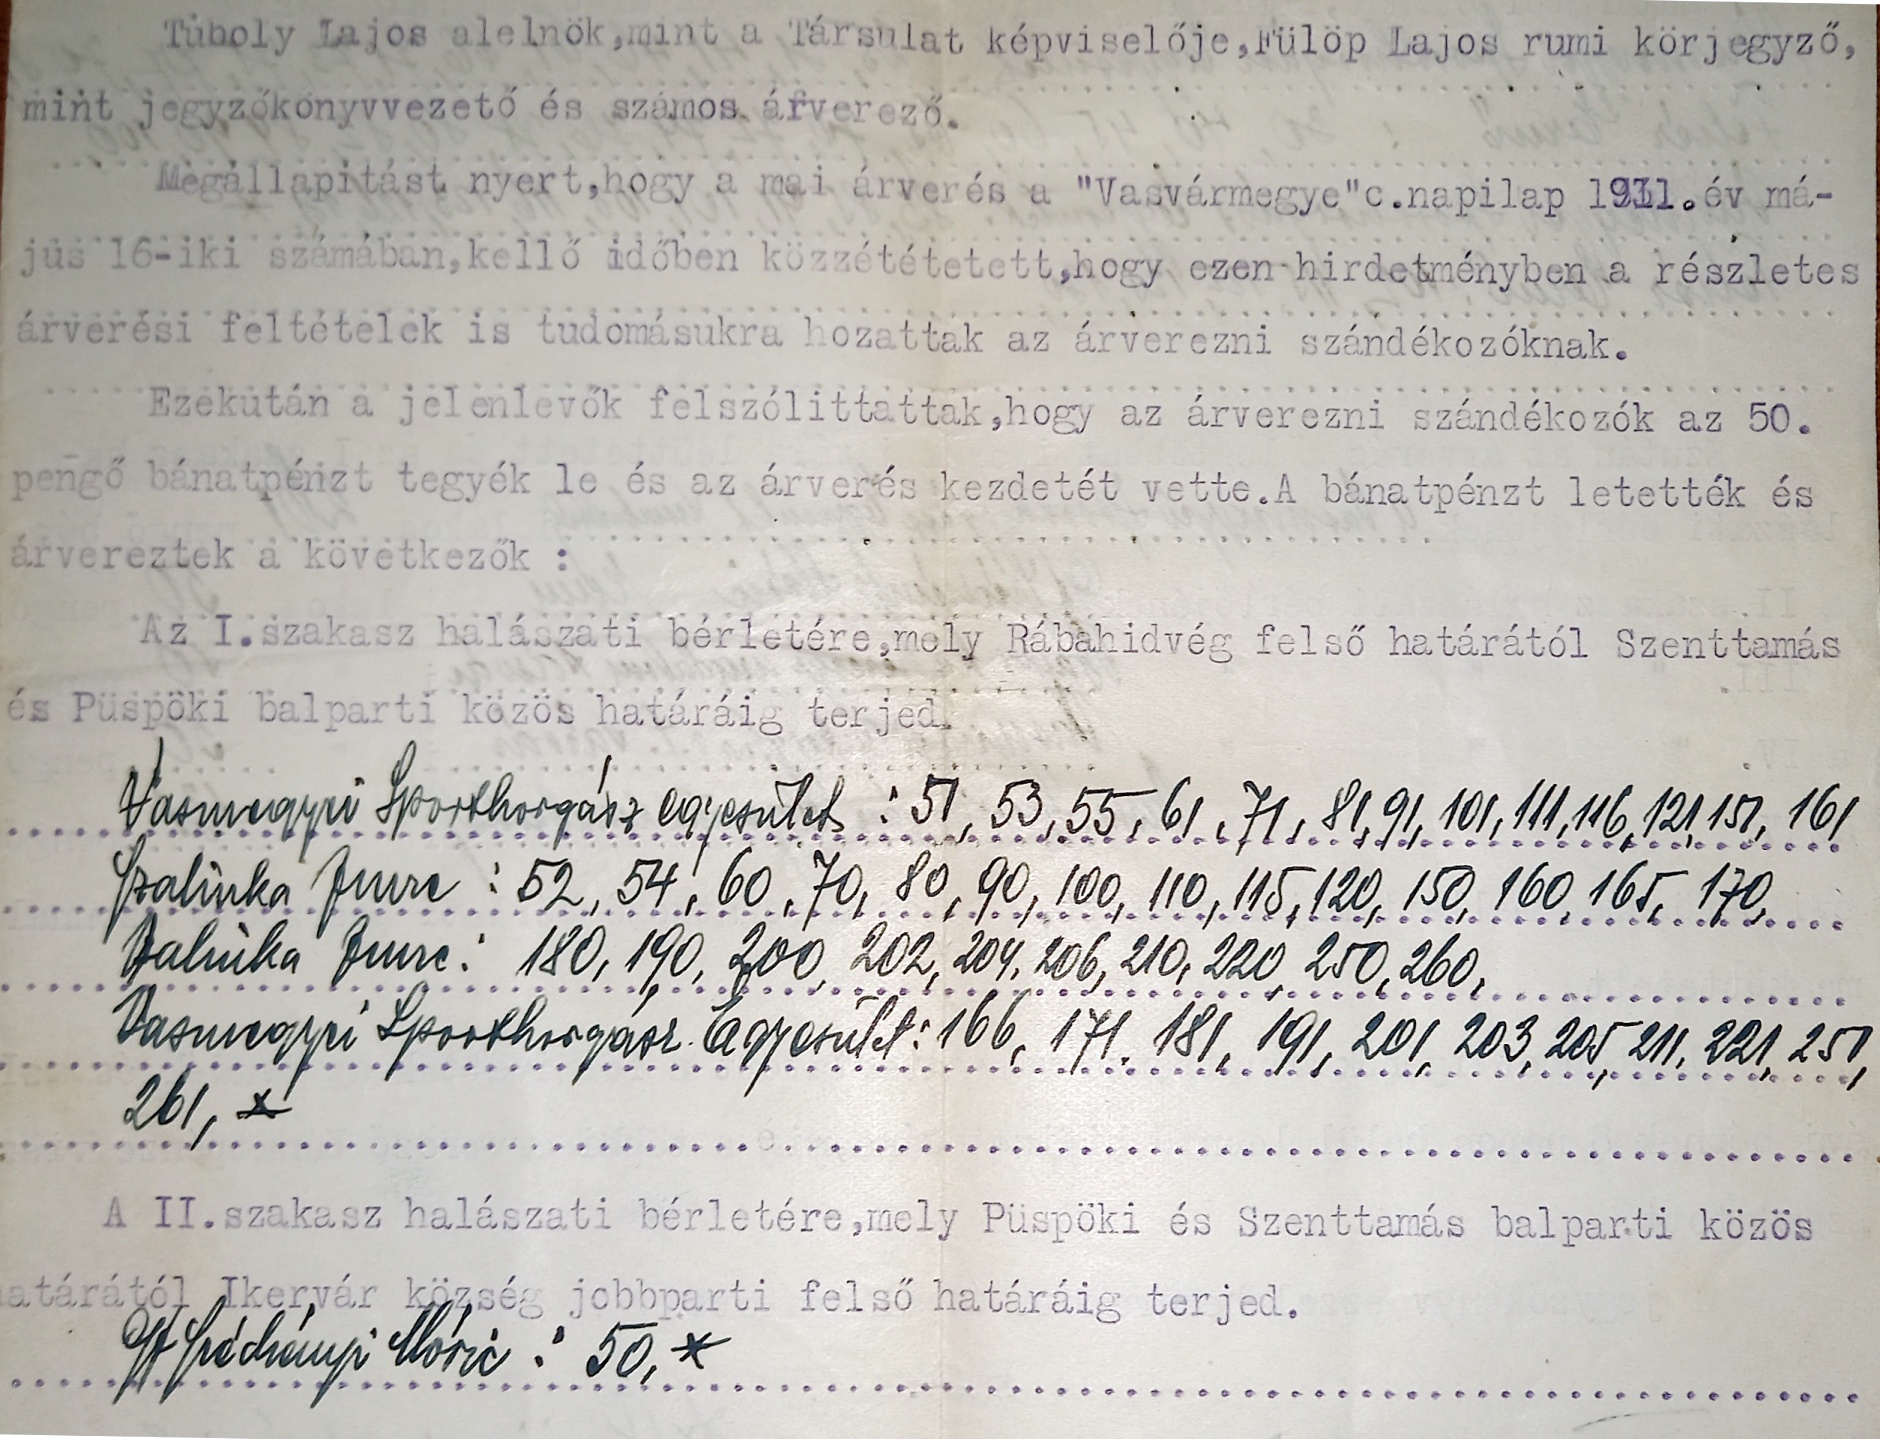 Tuboly Lajos alelnök,mint a Társulat képviselője,Fülöp Lajos rumi körjegyző,
mint jegyzőkönyvvezető és számos árverező.
Megállapitást nyert,hogy a mai árverés a "Vasvármegye"c.napilap 1931.év má-
jus 16-iki számában,kellő időben közzététetett,hogy ezen hirdetményben a részletes
árverési feltételek is tudomásukra hozattak az árverezni szándékozóknak.
Ezekután a jelenlevők felszólittattak,hogy az árverezni szándékozók az 50.
pengő bánatpénzt tegyék le és az árverés kezdetét vette.A bánatpénzt letették és
árvereztek a következők :
Az I.szakasz halászati bérletére,mely Rábahidvég felső határától Szenttamás
és Püspöki balparti közös határáig terjed.
Vasmegyei Sporthorgász egyesület : 51, 53, 55, 61, 71, 81, 91, 101, 111, 116, 121, 151, 161
Szalinka Imre : 52, 54, 60, 70, 80, 90, 100, 110, 115, 120, 150, 160, 165, 170,
Szalinka Imre : 180, 190, 200, 202, 204, 206, 210, 220, 250, 260,
Vasmegyei Sporthorgász Egyesület : 166, 171, 181, 191, 201, 203, 205, 211, 221, 251,
261, x
A II.szakasz halászati bérletére,mely Püspöki és Szenttamás balparti közös
határától Ikervár község jobbparti felső határáig terjed.
Gf Széchényi Móric : 50, x